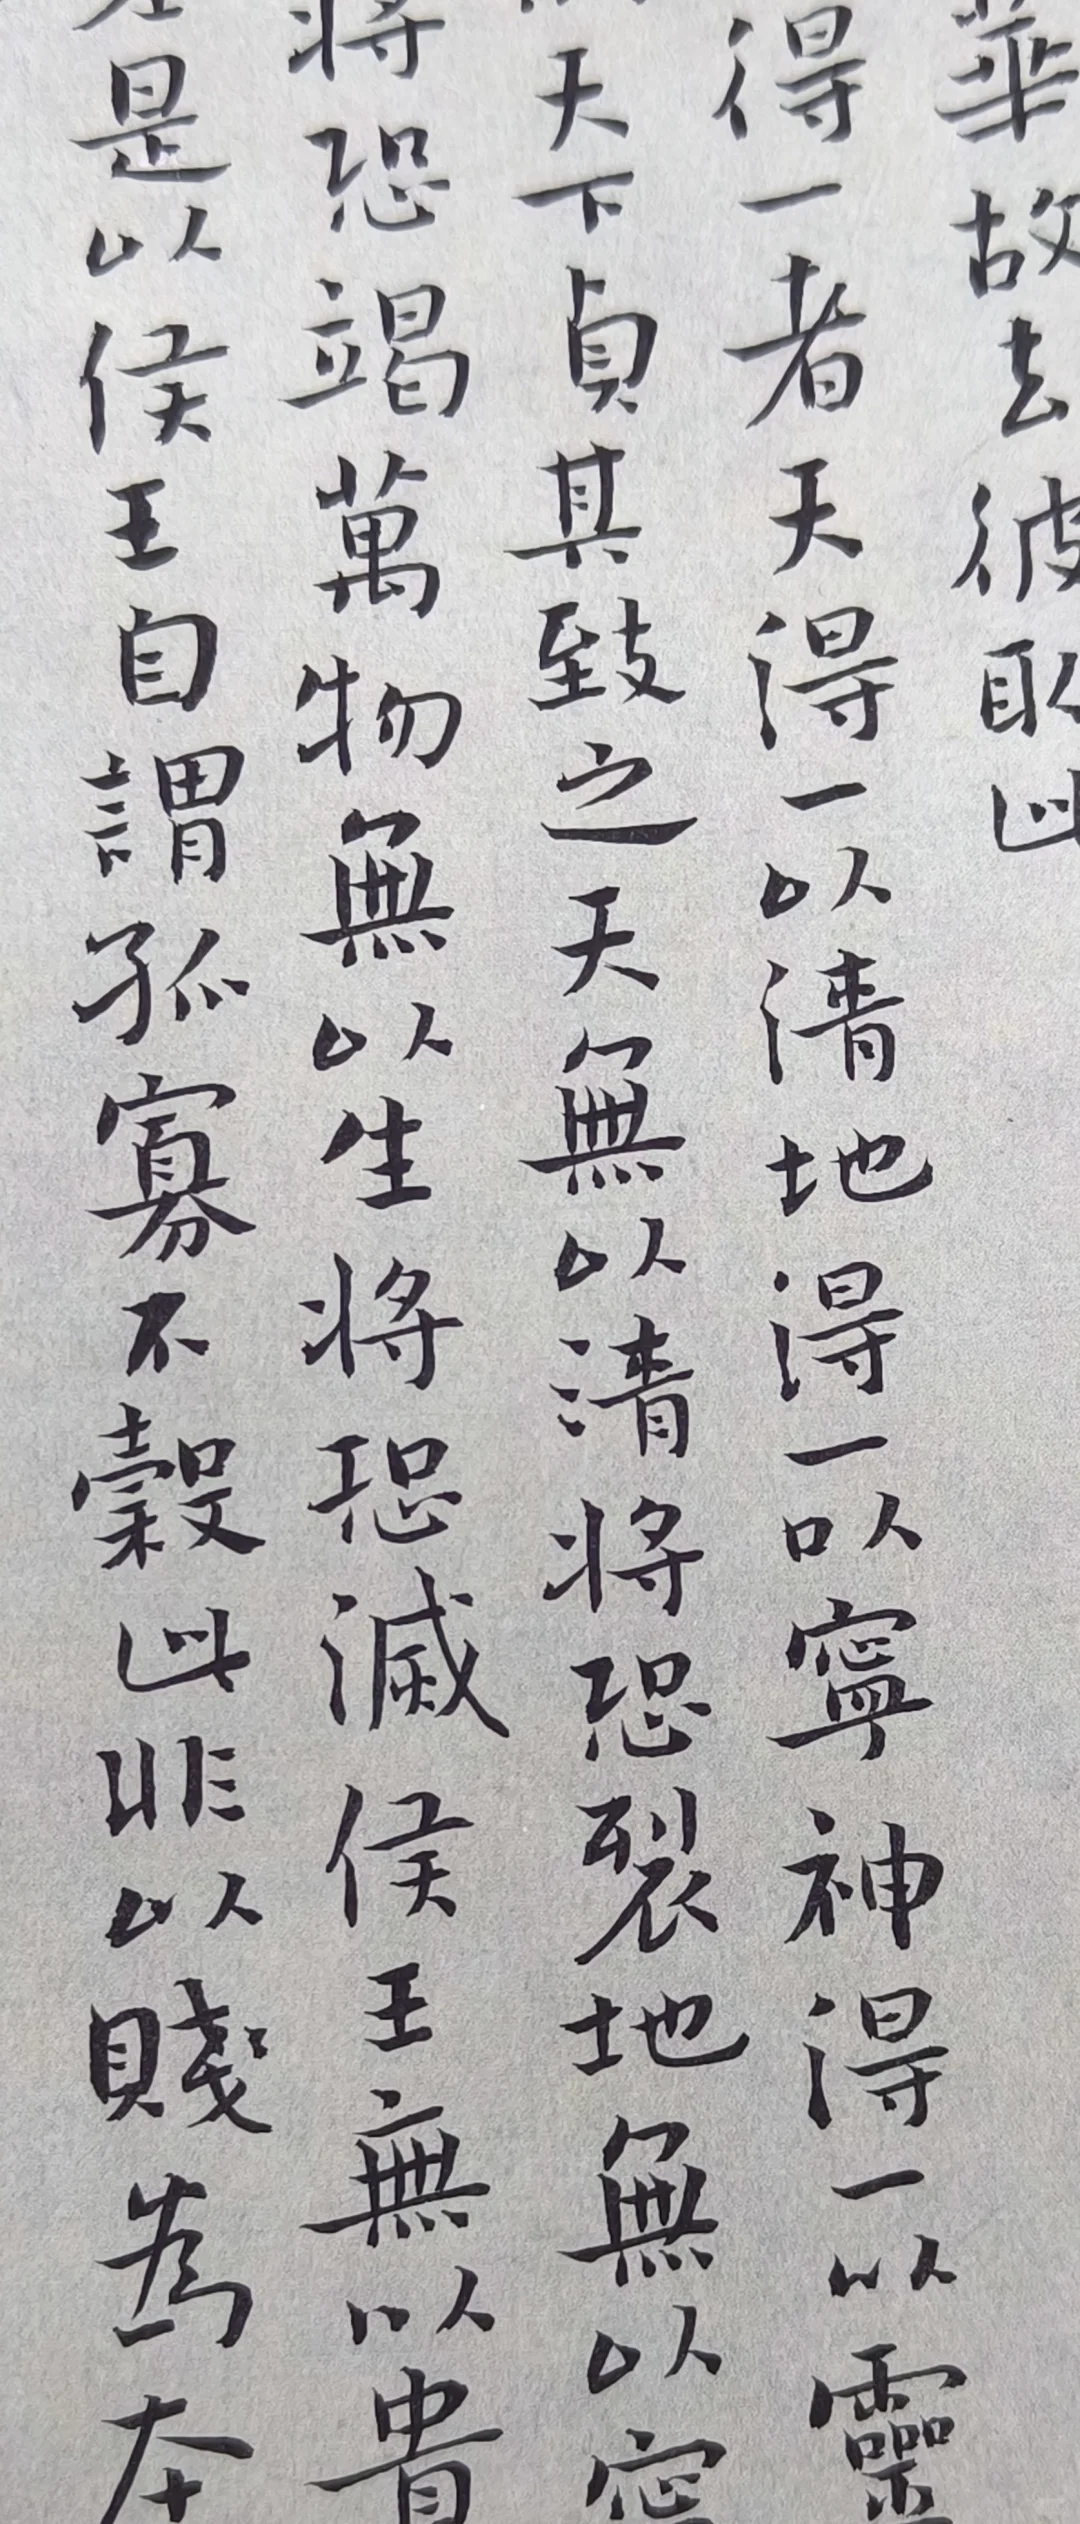 華故去彼取此
得一者天得一以清地得一以寧神得一以靈
天下貞其致之天無以清將恐裂地無以寧
將恐竭萬物無以生將恐滅侯王無以貴
是以侯王自謂孤寡不穀此非以賤為本